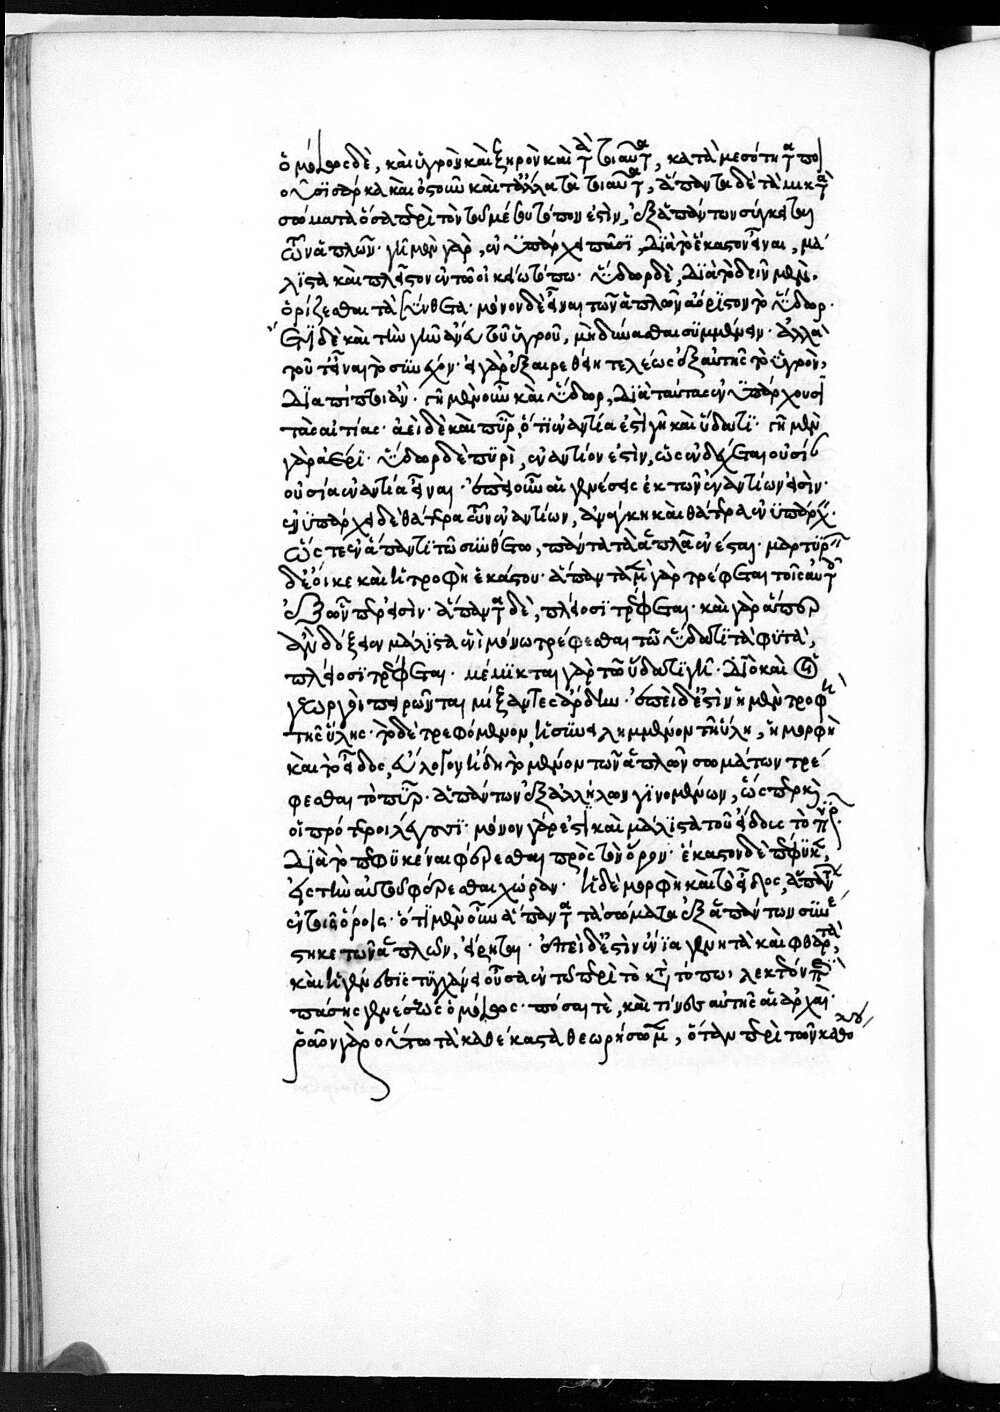 ὁμοίως δὲ, καὶ ὑγρὸν καὶ ξηρὸν καὶ τὰ τοιαῦτα, κατὰ μεσότητα ποι
οῦσι σάρκα καὶ ὀστοῦν καὶ τἄλλα τὰ τοιαῦτα, ἅπαντα δὲ τὰ μικτὰ
σώματα ὅσα περὶ τὸν τοῦ μέσου τόπον ἐστὶν, ἐξ ἁπάντων σύγκειται
τῶν ἁπλῶν· γῆ μὲν γὰρ, ἐνυπάρχει πᾶσι, διὰ τὸ ἕκαστον εἶναι, μά
λιστα καὶ πλεῖστον ἐν τῶ οἰκείω τόπω· ὕδωρ δὲ, διὰ τὸ δεῖν μὲν
ὁρίζεσθαι τὰ σύνθετα· μόνον δὲ εἶναι τῶν ἁπλῶν ἀόριστον τὸ ὕδωρ·
ἔτι δὲ καὶ τὴν γῆν ἄνευ τοῦ ὑγροῦ, μὴ δύνασθαι συμμένειν· ἀλλὰ
τοῦτ' εἶναι τὸ συνέχον· εἰ γὰρ ἐξαιρεθείη τελέως ἐξ αὐτῆς τὸ ὑγρὸν,
διαπίπτοι ἄν· γῆ μὲν οὖν καὶ ὕδωρ, διὰ ταύτας ἐνυπάρχουσι
τὰς αἰτίας· ἀεὶ δὲ καὶ πῦρ, ὅτι ἐναντία ἐστὶ γῆ καὶ ὕδατι· γῆ μὲν
γὰρ ἀέρι· ὕδωρ δὲ πυρὶ, ἐναντίον ἐστὶν, ὡς ἐνδέχεται οὐσί
οὐσία ἐναντία εἶναι· ἐπεὶ οὖν αἱ γενέσεις ἐκ τῶν ἐναντίων εἰσὶν·
ἐνυπάρχει δὲ θάτερα τῶν ἐναντίων, ἀνάγκη καὶ θάτερα ἐνυπάρχειν·
ὥστε ἐν ἅπαντι τῶ συνθέτω, πάντα τὰ ἁπλᾶ ἐνέσται· μαρτυρεῖν
δ' ἔοικε καὶ ἡ τροφὴ ἑκάστου· ἅπαντα μὲν γὰρ τρέφεται τοῖς αὐτοῖς
ἐξ ὧνπερ ἐστὶν· ἅπαντα δὲ, πλείοσι τρέφεται· καὶ γὰρ ἅπερ
ἂν δόξειεν μάλιστα ἑνὶ μόνω τρέφεσθαι τῶ ὕδατι τὰ φυτὰ,
πλείοσι τρέφεται· μέμικται γὰρ τῶ ὕδατι γῆ· διὸ καὶ οἱ
γεωργοὶ πειρῶνται μίξαντες ἄρδειν· ἐπεὶ δ' ἐστὶν ἡ μὲν τροφὴ
τῆς ὕλης· τὸ δὲ τρεφόμενον, ἡ συνειλημμένον τῆ ὕλη, ἡ μορφὴ
καὶ τὸ εἶδος, εὔλογον ἤδη τὸ μόνον τῶν ἁπλῶν σωμάτων τρέ
φεσθαι τὸ πῦρ· ἁπάντων ἐξ ἀλλήλων γινομένων, ὥσπερ καὶ
οἱ πρότεροι λέγουσι· μόνον γάρ ἐστι καὶ μάλιστα τοῦ εἴδους τὸ πῦρ·
διὰ τὸ πεφυκέναι φέρεσθαι πρὸς τὸν ὅρον· ἕκαστον δὲ πέφυκεν,
εἰς τὴν αὑτοῦ φέρεσθαι χώραν· ἡ δὲ μορφὴ καὶ τὸ εἶδος, ἁπάντων
ἐν τοῖς ὅροις· ὅτι μὲν οὖν ἅπαντα τὰ σώματα ἐξ ἁπάντων συνέ
στηκε τῶν ἁπλῶν, εἴρηται· ἐπεὶ δ' ἐστὶν ἔνια γενητὰ καὶ φθαρτὰ,
καὶ ἡ γένεσις τυγχάνει οὖσα ἐν τῶ περὶ τὸ μέσον τόπω, λεκτέον περὶ
πάσης γενέσεως ὁμοίως· πόσαι τὲ, καὶ τίνες αὐτῆς αἱ ἀρχαὶ·
ῥᾶον γὰρ οὕτω τὰ καθ' ἕκαστα θεωρήσομεν, ὅταν περὶ τῶν καθόλου